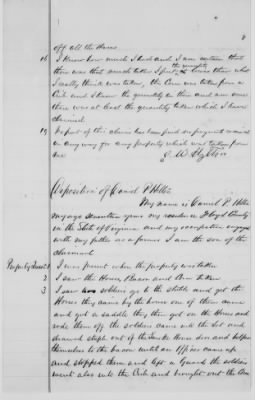 off all the Horses
16 I know how much I had and I am certain that
there was that much taken I put the quantity at less than what
I really think was taken, the Corn was taken from a
Crib and I knew the quantity in that and am sure
there was at least the quantity taken which I have
claimed
19 No part of this claim has been paid or payment received
in any way for any property which was taken from
me
Deposition of Daniel P Hylton
My name is Daniel P. Hylton
my age seventeen years my residence is Floyd County
in the State of Virginia and my occupation engaged
with my father as a farmer I am the son of the
claimant
1 I was present when the property was taken
2 I saw the Horse, Bacon and Corn taken
3 I saw soldiers go to the stable and get the
Horse they came by the house one of them came
and got a saddle they then got on the Horse and
rode them off the soldiers came into the lot and
drawed staple out of the Smoke House door and helped
themselves to the bacon until an Officer came up
and stopped them and left a Guard the soldiers
went also into the Crib and brought out the Corn